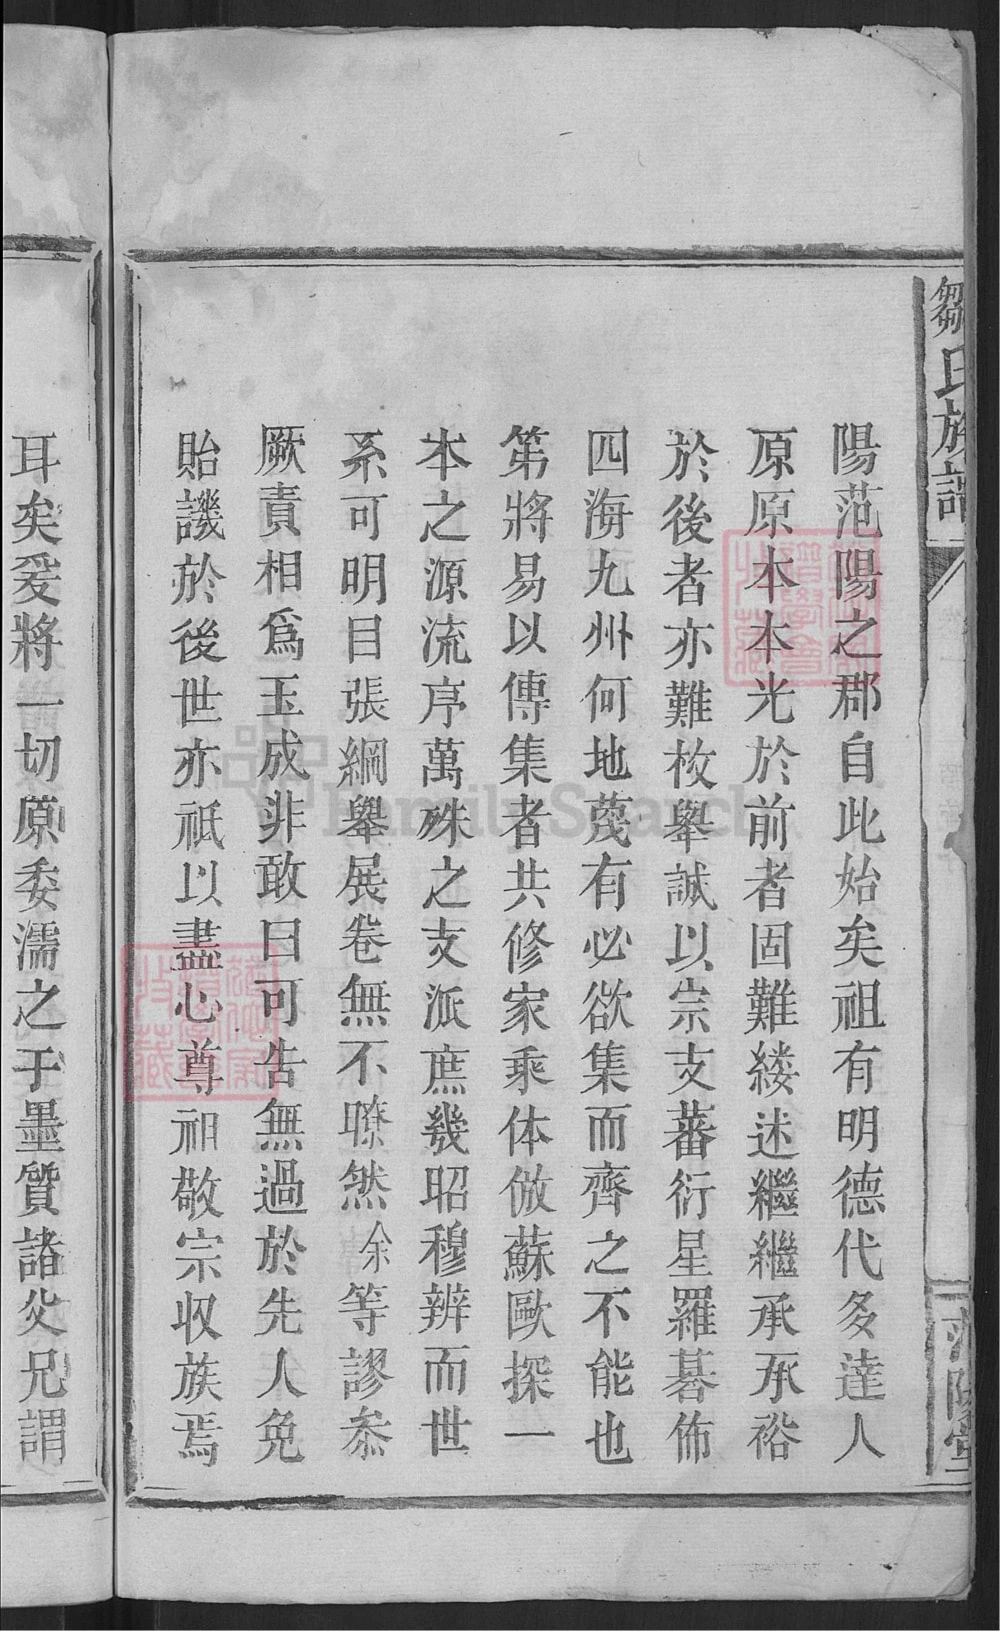 鄒氏族譜
范陽堂
陽范陽之郡自此始矣祖有明德代多達人
原原本本光於前者固難縷述繼繼承承裕
於後者亦難枚舉誠以宗支蕃衍星羅碁佈
四海九州何地蔑有必欲集而齊之不能也
第將易以傳集者共修家乘体倣蘇歐探一
本之源流序萬殊之支派庶幾昭穆辨而世
系可明目張綱舉展卷無不瞭然余等謬叅
厥責相為玉成非敢曰可告無過於先人免
貽譏於後世亦祗以盡心尊祖敬宗收族焉
耳矣爰將一切原委濡之于墨質諸父兄謂
FamilySearch